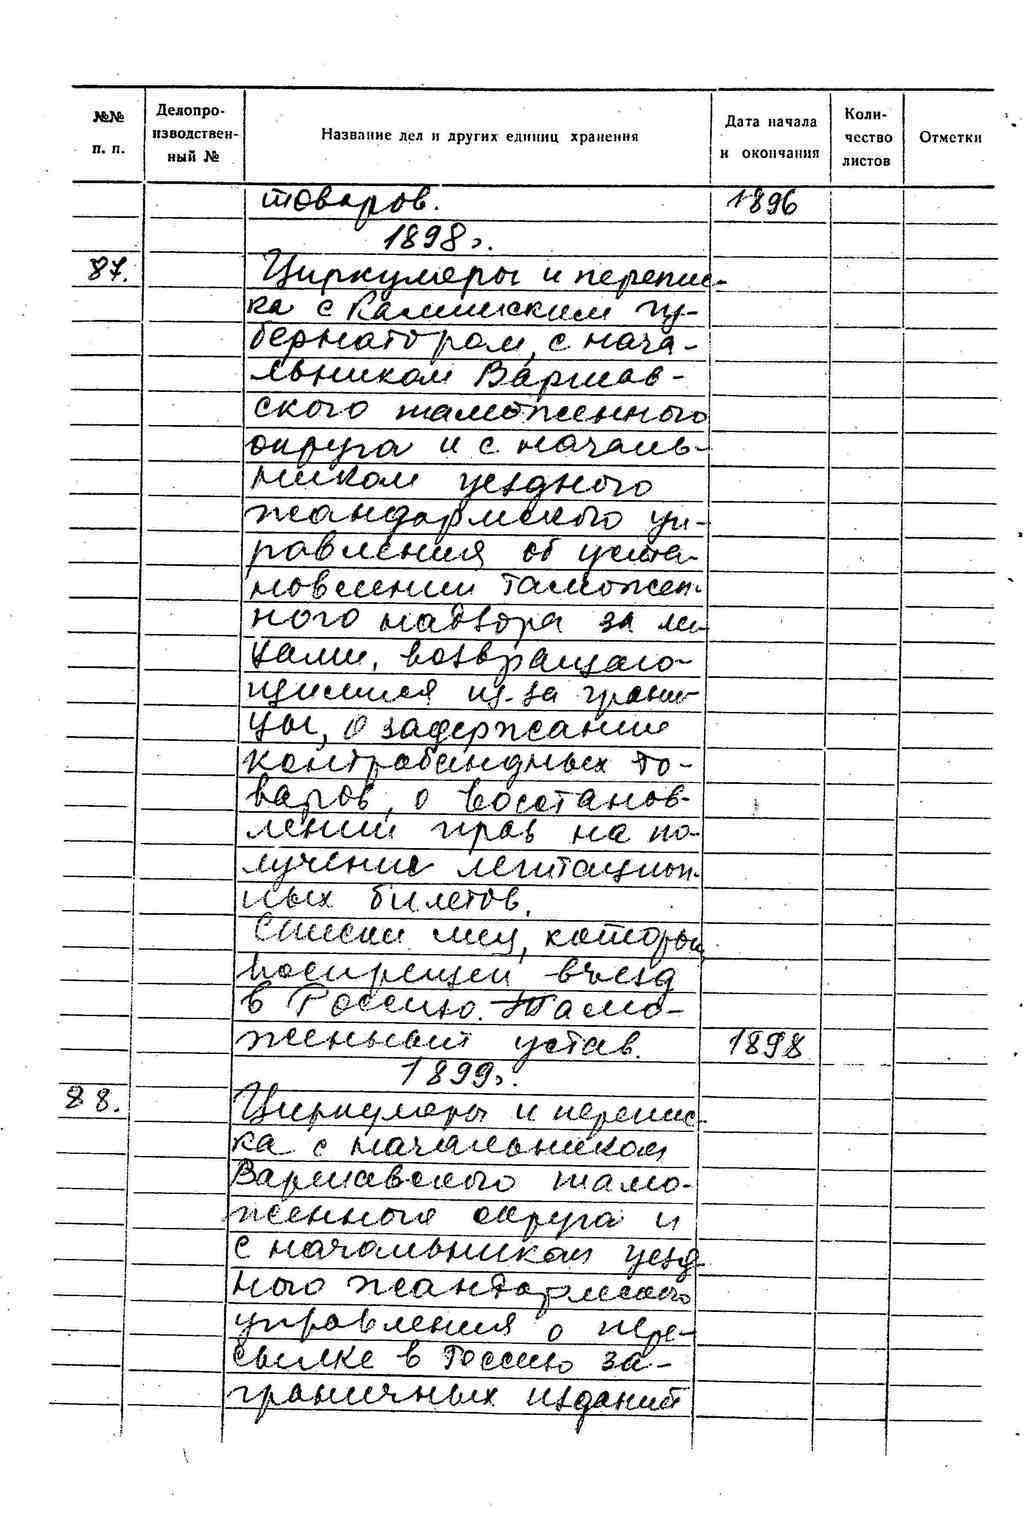 №№ п. п.
Делопроизводствен-ный №
Название дел и других единиц хранения
Дата начала и окончания
Коли-чество листов
Отметки
товаров. 1896
1898г.
87. Циркуляры и перепис-
ка с Калишским гу-
бернатором, с нача-
льником Варшав-
ского таможенного
округа и с началь-
ником уездного
жандармского уп-
равления об уста-
новлении таможен-
ного надзора за ли-
цами, возвращаю-
щимися из-за грани-
цы, о задержании
контрабандных то-
варов, о восстанов-
лении прав на по-
лучение легитацион-
ных билетов.
Списки лиц, которым
воспрещен въезд
в Россию. Тамо-
женный устав. 1898
1899г.
88. Циркуляры и перепис-
ка с начальником
Варшавского тамо-
женного округа и
с начальником уезд-
ного жандармского
управления о пере-
сылке в Россию за-
граничных изданий